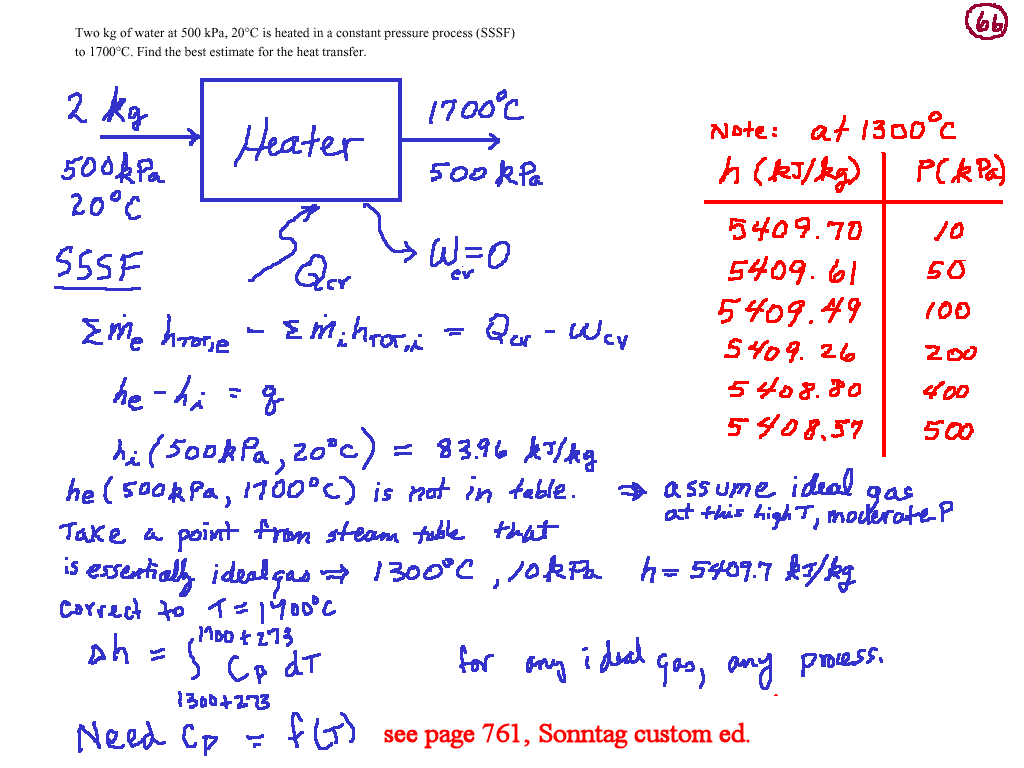 66
Two kg of water at 500 kPa, 20°C is heated in a constant pressure process (SSSF)
to 1700°C. Find the best estimate for the heat transfer.
2 kg
500 kPa
20°C
Heater
1700°C
500 kPa
Qcv
Wcv = 0
SSSF
Note: at 1300°C
h (kJ/kg) P(kPa)
5409.70 10
5409.61 50
5409.49 100
5409.26 200
5408.80 400
5408.57 500
Σṁe hTOT,e - Σṁi hTOT,i = Qcv - Wcv
he - hi = q
hi (500kPa, 20°C) = 83.96 kJ/kg
he (500kPa, 1700°C) is not in table. ⇒ assume ideal gas
at this high T, moderate P
Take a point from steam table that
is essentially ideal gas ⇒ 1300°C, 10kPa h = 5409.7 kJ/kg
Correct to T = 1700°C
Δh = ∫ Cp dT for any ideal gas, any process.
1700+273
1300+273
Need Cp = f(T) see page 761, Sonntag custom ed.